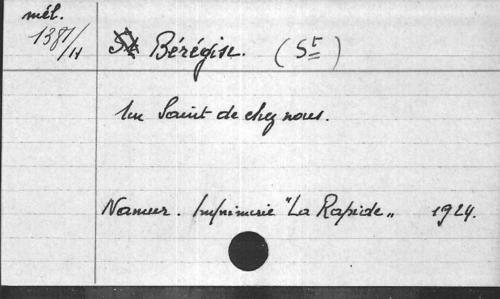 mél.
1387/H
Bérégise. (St)
Un Saint de chez nous.
Namur. Imprimerie "La Rapide„ 1924.